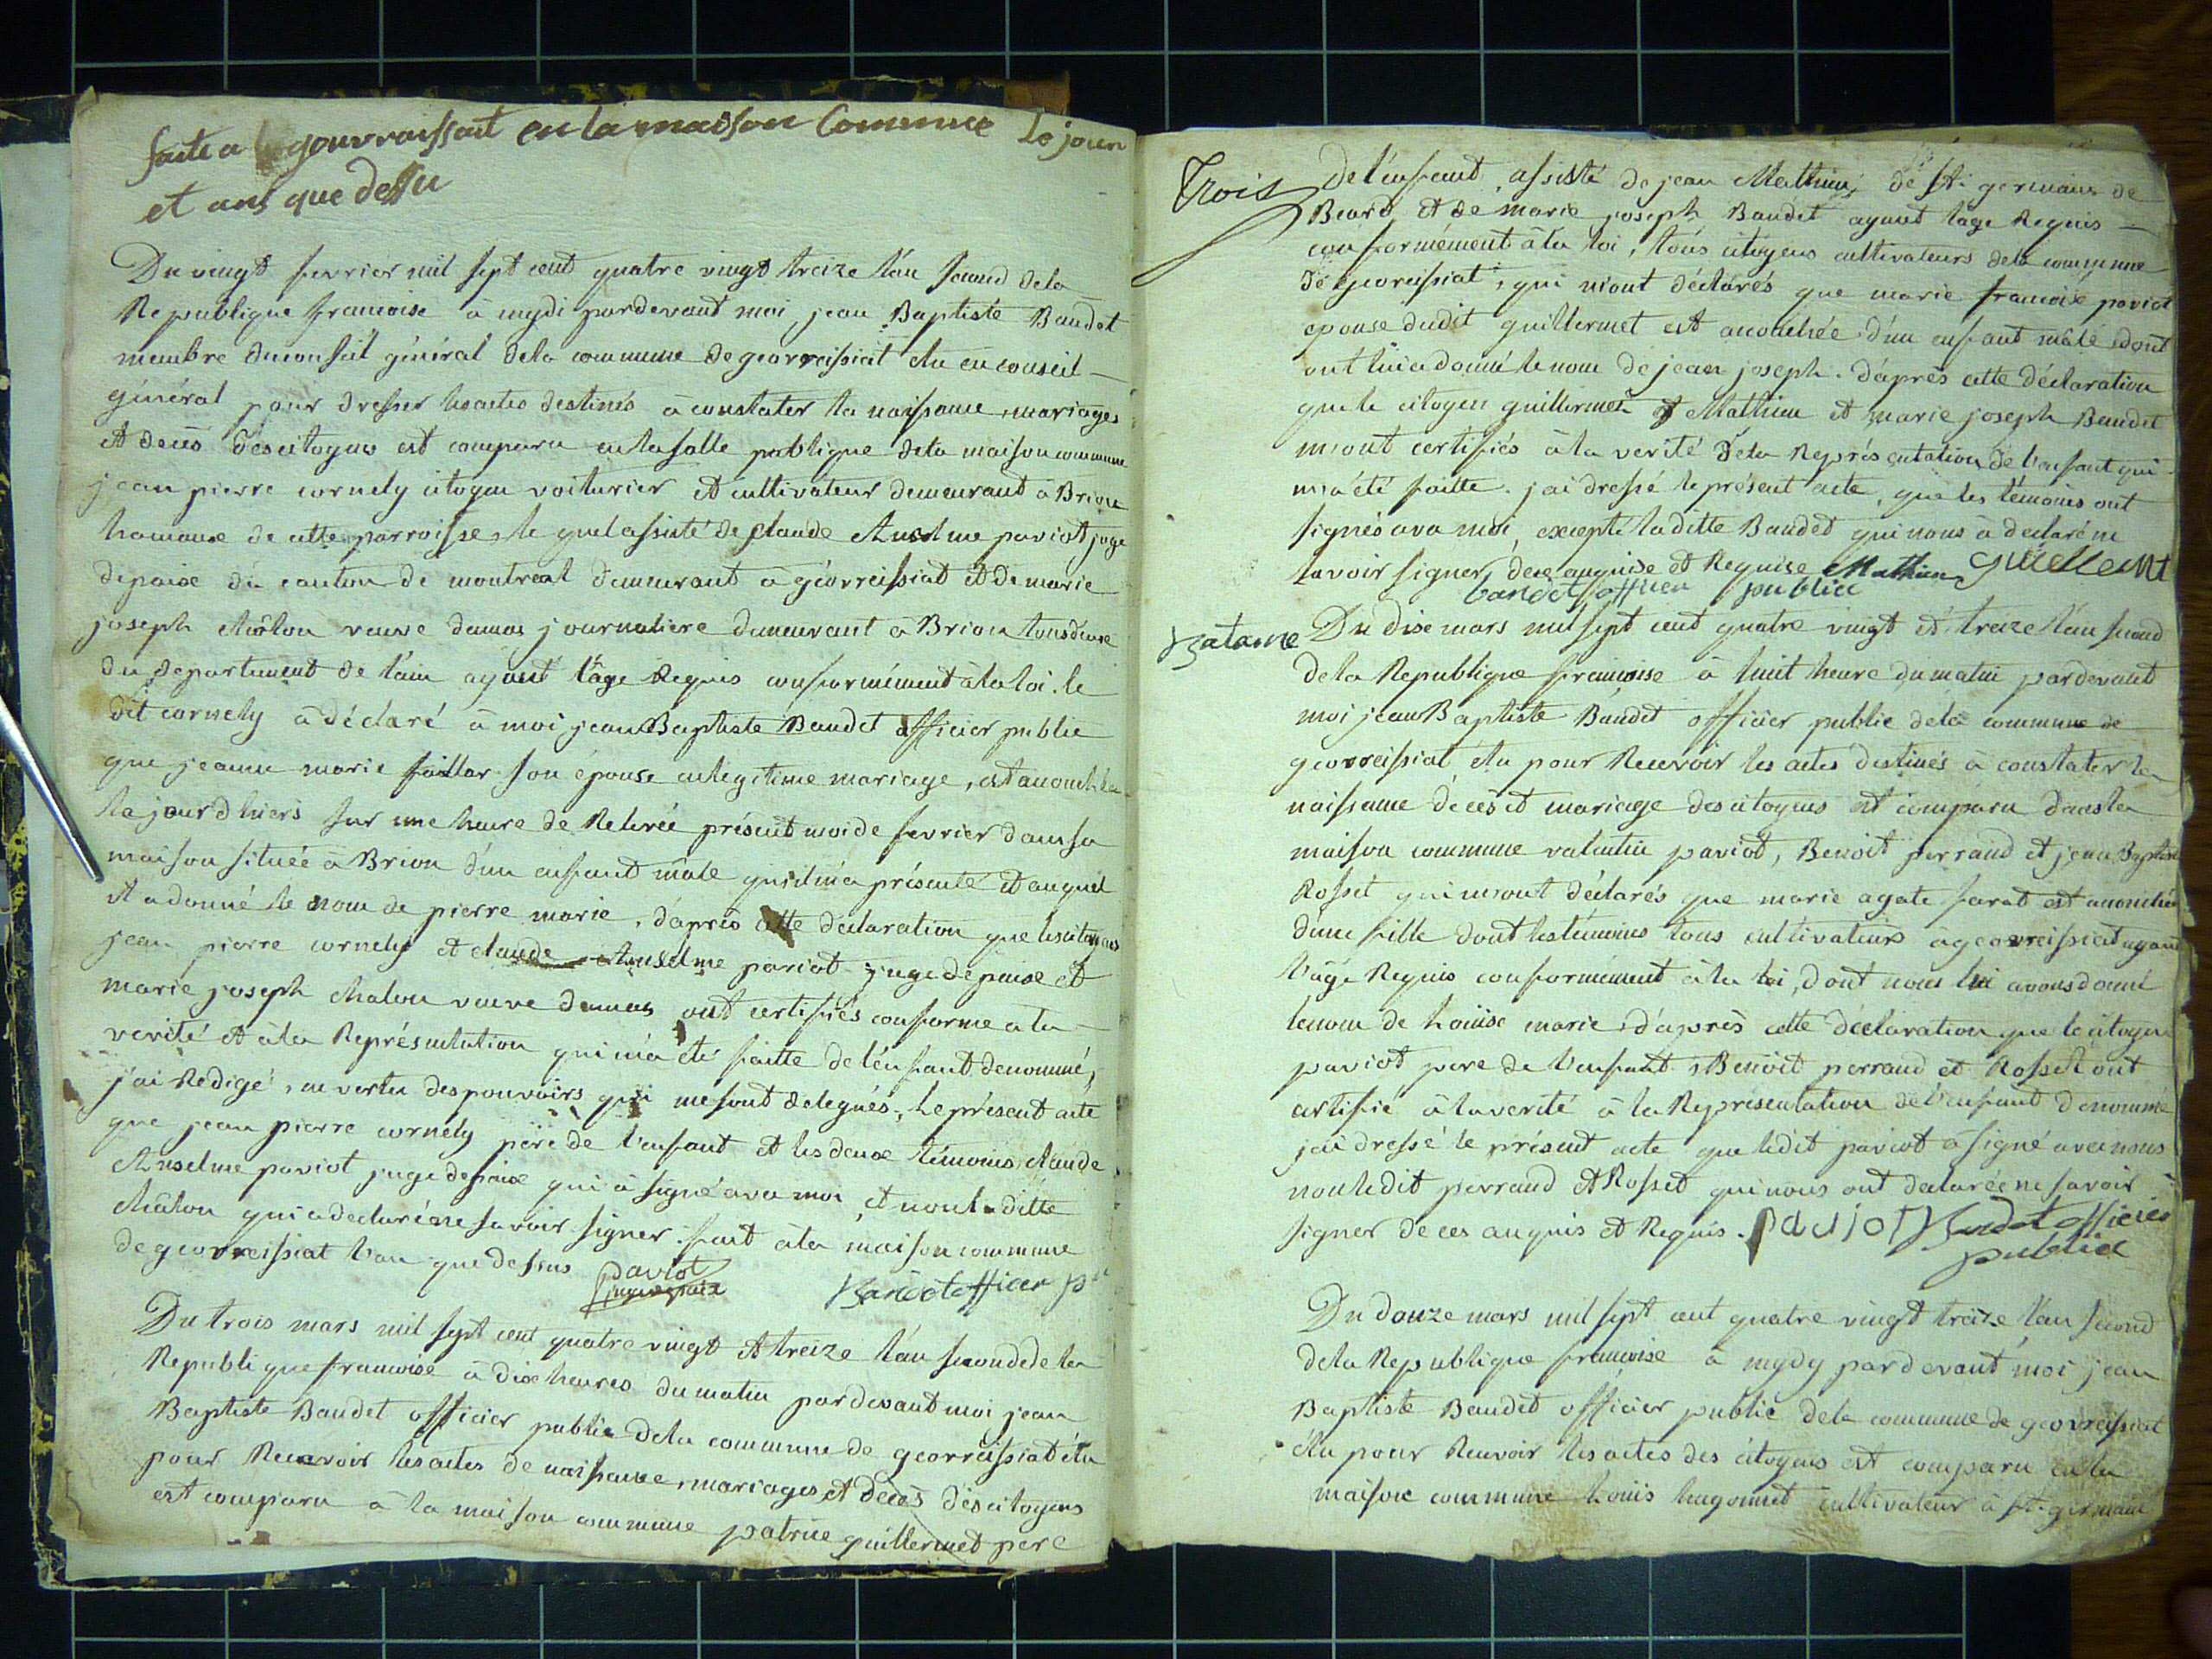 faite a gouvraissait en la maison Commune Le jour
et ans que dessu
Du vingt fevrier mil sept cent quatre vingt treize l'an second dela
Republique francoise à mydi pardevant moi jean Baptiste Baudet
membre duconseil général dela commune de georreissiat elu en conseil
général pour dresser les actes destinés à constater la naissance, mariages
et deces des citoyens est comparu en la salle publique dela maison commune
jean pierre cornely citoyen voiturier et cultivateur demeurant à Brion
hameau de cette parroisse, le quel assisté de claude Anselme paviot juge
depaix du canton de montreal demeurant à géorreissiat et de marie
joseph châlon veuve dumas journaliere demeurant à Brion tous deux
du departement de l'ain ayant l'âge Requis conformément à la loi. le
dit cornely à déclaré à moi jean Baptiste Baudet officier public
que jeanne marie faillar son épouse en légitime mariage, est accouchée
le jour d'hiers sur une heure de Relevée présent moi de fevrier dans sa
maison située à Brion d'un enfant mâle qu'il m'a présenté et auquel
il a donné le nom de pierre marie, d'après cette déclaration que les citoyens
jean pierre cornely et claude Anselme paviot juge de paix et
marie joseph chalon veuve dumas ont certifiés conforme a la
verité et à la Représentation qui m'a été faitte de l'enfant denommé,
j'ai Redigé, en vertu des pouvoirs qui me sont delegués, le présent acte
que jean pierre cornely père de l'enfant et les deux témoins claude
Anselme paviot juge de paix qui à signé avec moi et non la ditte
châlon qui a declarée ne savoir signer. fait à la maison commune
de georreissiat l'an que dessus paviot
juge de paix Baudet officier p
Du trois mars mil sept cent quatre vingt et treize l'an seconde de la
Republique francoise à dix heures du matin pardevant moi jean
Baptiste Baudet officier public dela commune de georreissiat élu
pour Recevoir les actes de naissance, mariages et deces des citoyens
est comparu à la maison commune patrice guillermet pere
Trois De l'enfant, assisté de jean Mathieu de St. germain de
Beard et de marie joseph Baudet ayant l'age Requis
conformément à la loi, tous citoyens cultivateurs dela commune
de georeissiat, qui m'ont déclarés que marie francoise paviot
epouse dudit guillermet est accouchée d'un enfant mâle dont
ont lui a donné le nom de jean joseph. d'après cette déclaration
que le citoyen guillermet et Mathieu et marie joseph Baudet
m'ont certifiés à la verité dela Représentation de l'enfant qui
m'a été faitte. j'ai dressé le présent acte, que les témoins ont
signés avec moi, excepté laditte Baudet qui nous à declaré ne
savoir signer, de ce enquise et Requise Mathieu
baudet officier public
Du dix mars mil sept cent quatre vingt et treize l'an second
dela Republique francoise à huit heure du matin pardevant
moi jean Baptiste Baudet officier public dela commune de
georreissiat élu pour Recevoir les actes destinés à constater la
naissance décès et mariage des citoyens est comparu dans la
maison commune valentin paviot, Benoit perrand et jean Baptiste
Rosset qui m'ont déclarés que marie agate farat est accouchée
d'une fille dont les témoins tous cultivateurs à georreissiat ayant
l'age Requis conformément à la loi, dont nous lui avons donné
le nom de Louise marie, d'après cette déclaration que le citoyen
paviot pere de l'enfant, Benoit perrand et Rosset ont
certifié à la verité à la Representation de l'enfant denommé
j'ai dressé le présent acte que ledit paviot à signé avec nous
non ledit perrand et Rosset qui nous ont declarée ne savoir
signer de ces enquis et Requis. paujot Baudet officier
public
Du douze mars mil sept cent quatre vingt treize l'an second
dela Republique francoise à mydy pardevant moi jean
Baptiste Baudet officier public dela commune de georreissiat
élu pour Recevoir les actes des citoyens est comparu en la
maison commune Louis hugonnet cultivateur à St. germain